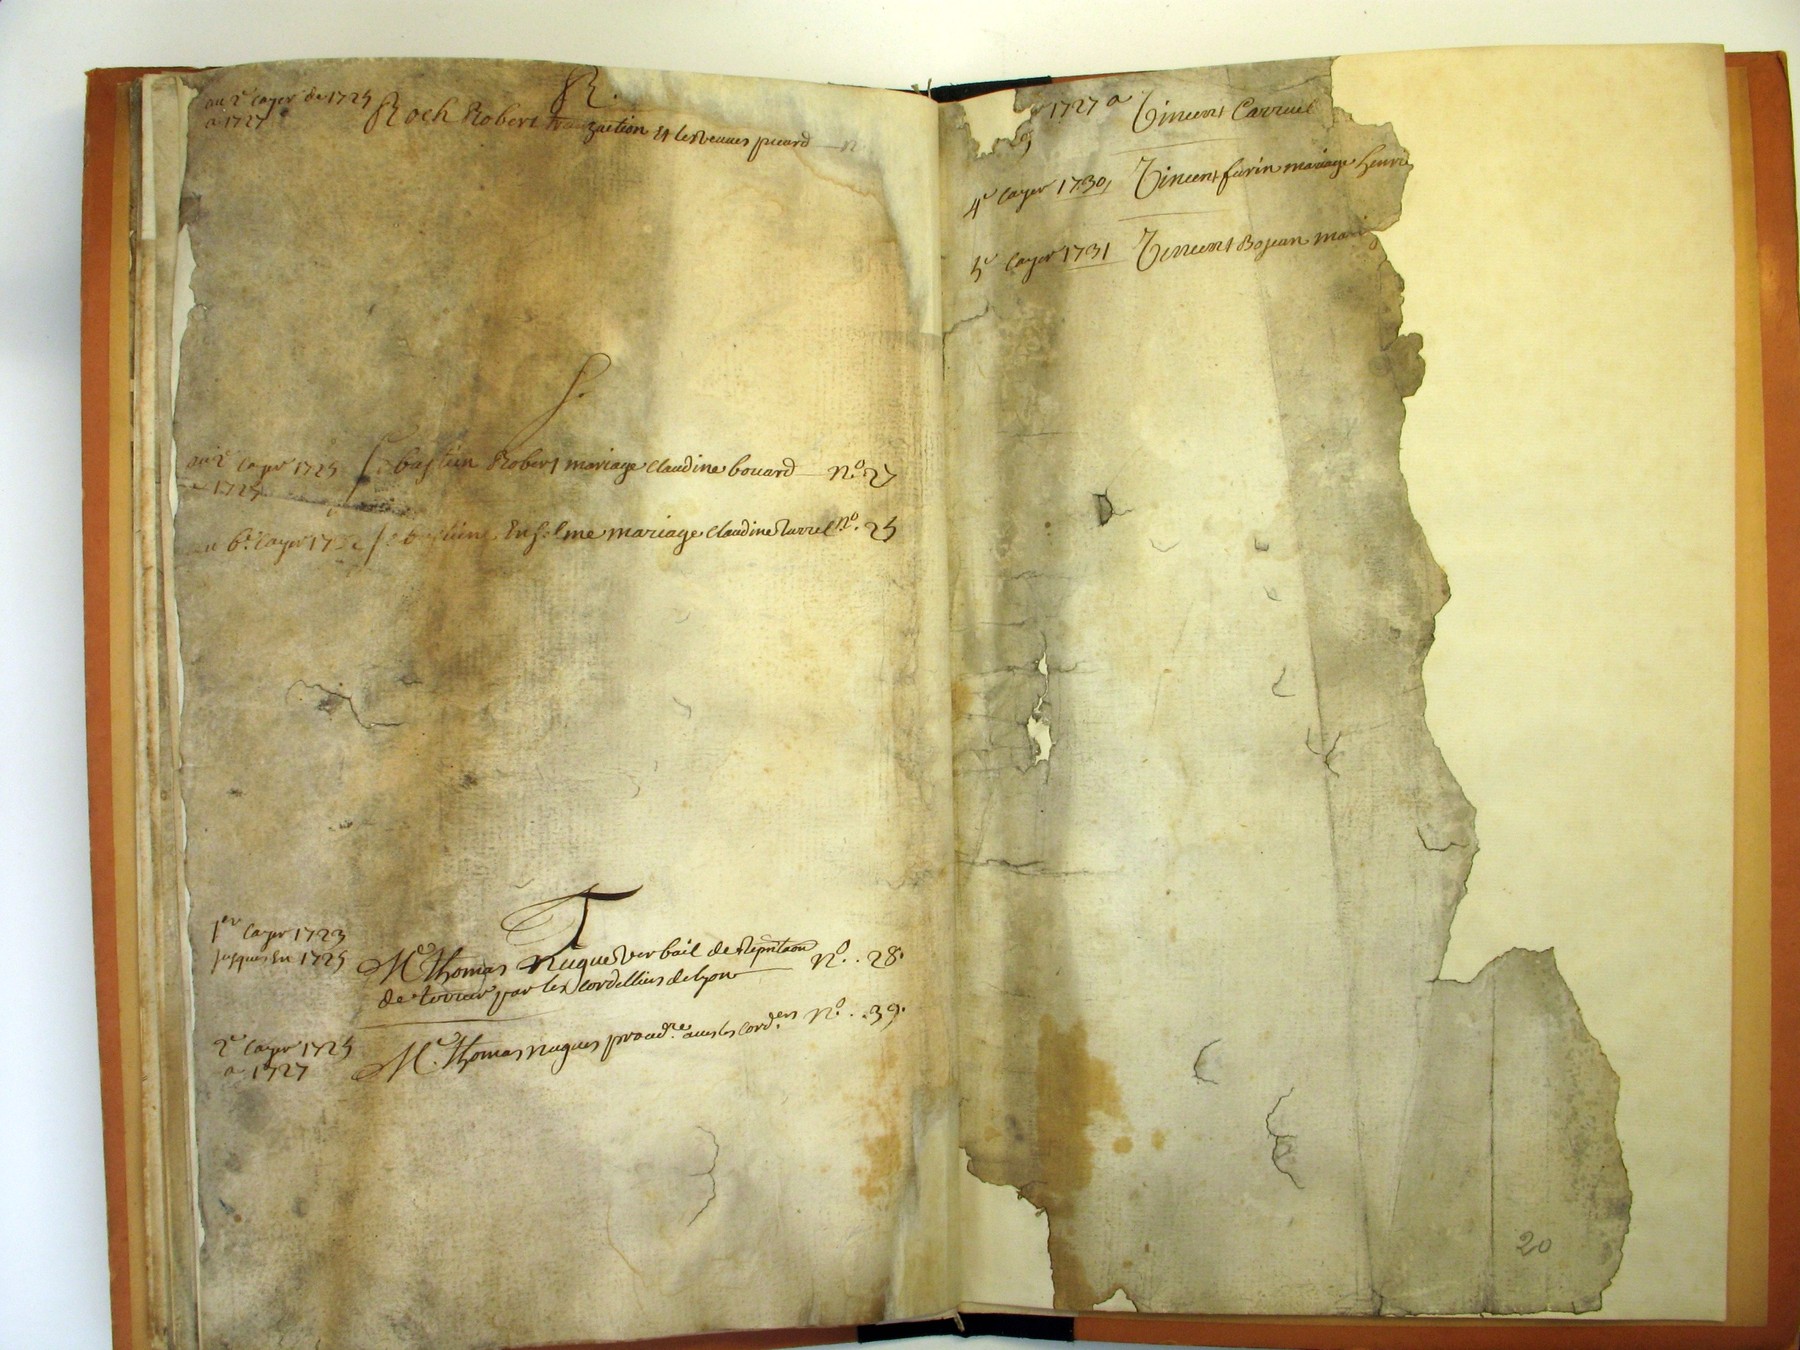 R.
au 2e Cayer de 1725
a 1727
Roch Robert tranzaction et les veuves picard n
S.
au 2e Cayer 1725
a 1725
Sebastien Robert mariage Claudine bouard no. 27
au 6e. Cayer 173 Sebastien mariage Claudine no. 25
T
1er Cayer 1723
jusques en 1725
Me. Thomas Nugues verbail de
de terrier par les Cordelliers de lyon no. . 28.
2e Cayer 1725
a 1727
Me. Thomas Nugues avec les Cord.ers no. . 39.
1727 a Vincent Carruel
4e Cayer 1730, Vincent furin mariage henri
5e Cayer 1731 Vincent Bojean mari
20